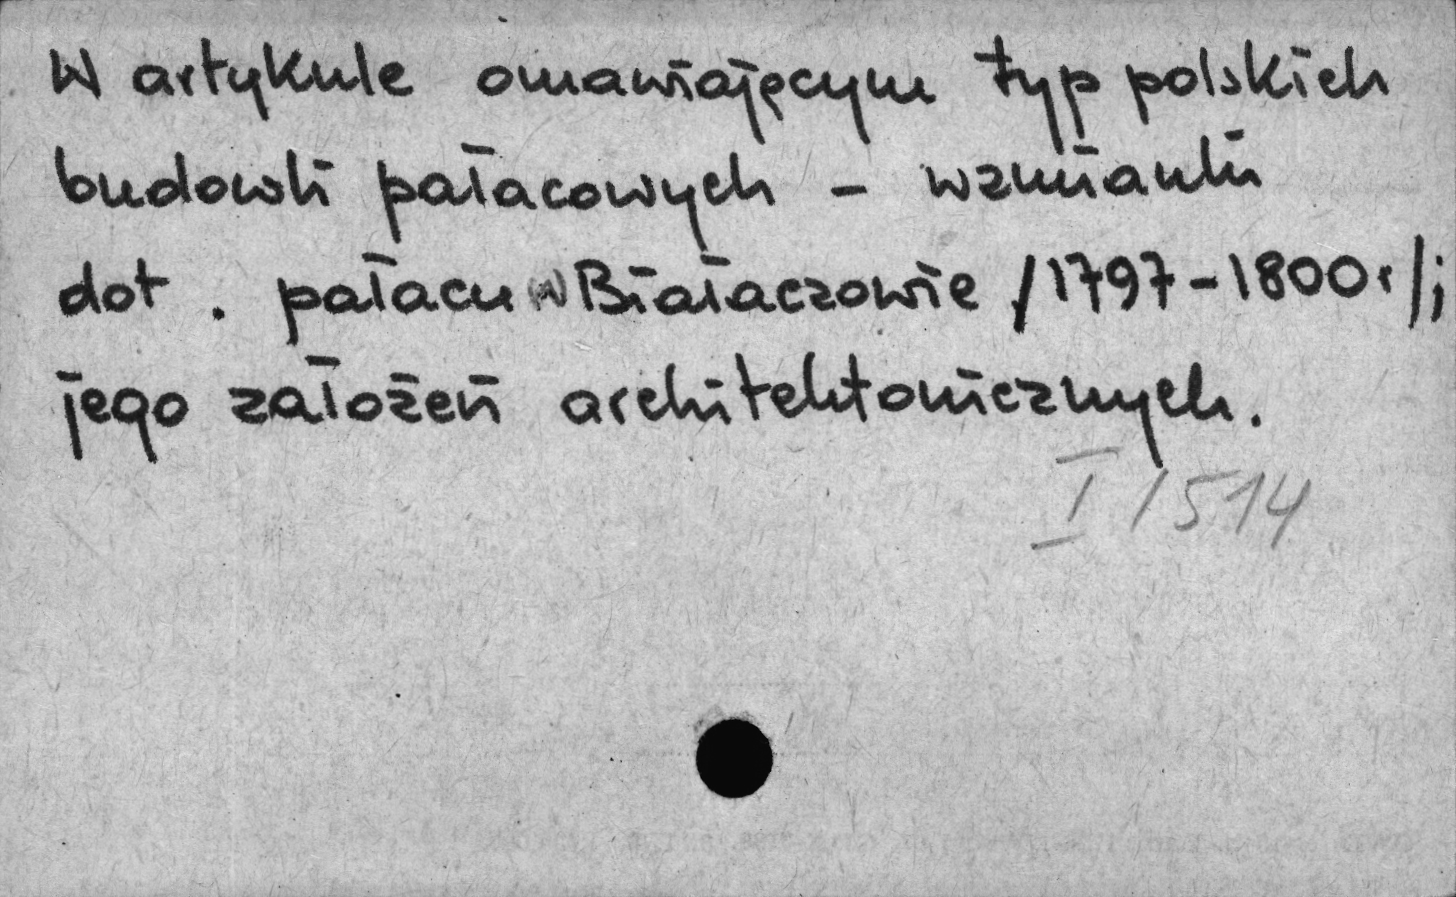 W artykule omawiającym typ polskich
budowli pałacowych - wzmianki
dot. pałacu w Białaczowie /1797-1800r/;
jego założeń architektonicznych.
I /514